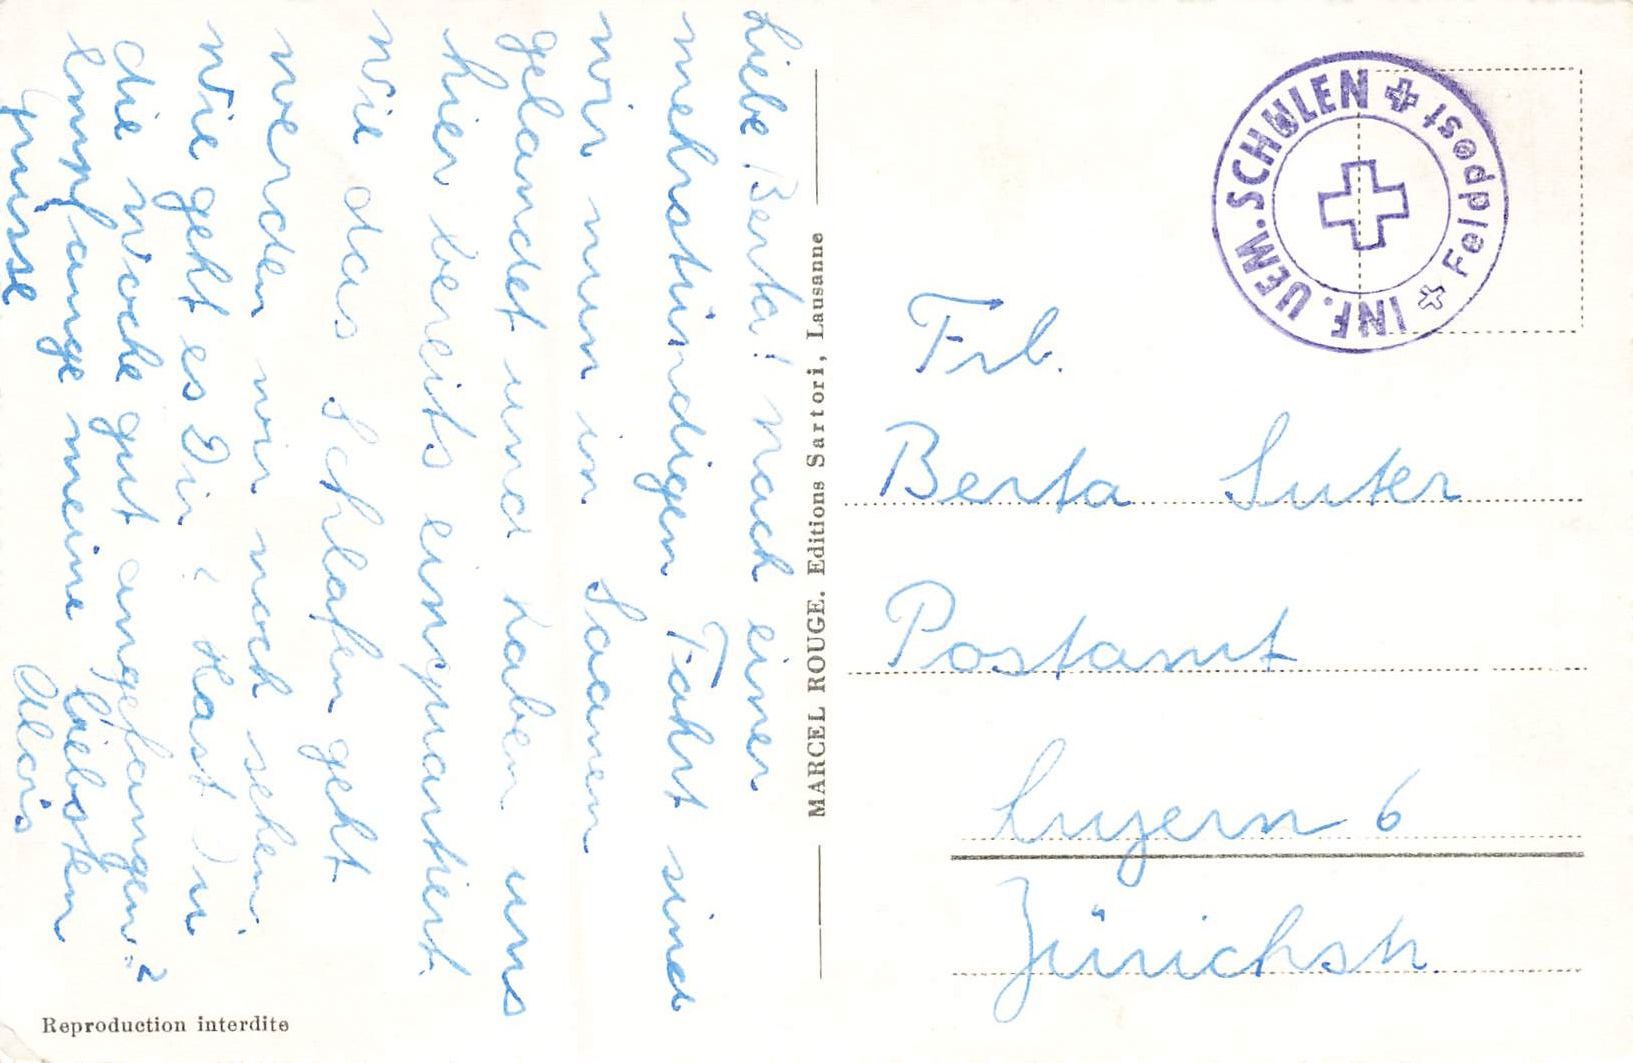 Liebe Berta! Nach einer
mehrstündigen Fahrt sind
wir nun in Saanen
gelandet und haben uns
hier bereits einquartiert.
Wie das Schlafen geht
werden wir noch sehen.
Wie geht es Dir? Hast Du
die Woche gut angefangen?
Empfange meine liebsten
Grüsse Alois
MARCEL ROUGE. Editions Sartori, Lausanne
Reproduction interdite
INF. UEM. SCHULEN
Feldpost
Frl.
Berta Suter
Postamt
Luzern 6
Zürichstr.